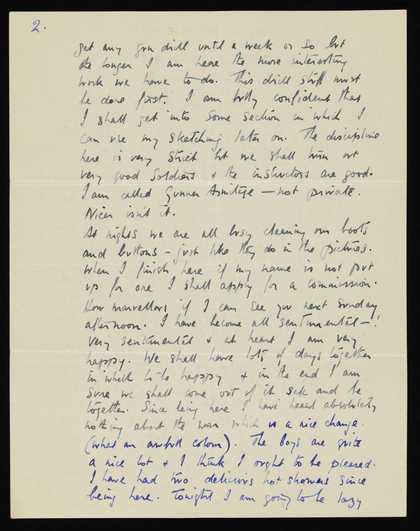 2.
get any gun drill until a week or so but
the longer I am here the more interesting
work we have to do. This drill stuff must
be done first. I am fully confident that
I shall get into some section in which I
can use my sketching later on. The discipline
here is very strict but we shall turn out
very good soldiers & the instructors are good.
I am called Gunner Armitage — not private.
Nicer isnt it.
At nights we are all busy cleaning our boots
and buttons – just like they do in the pictures.
When I finish here if my name is not put
up for one I shall apply for a commission.
How marvellous if I can see you next Sunday
afternoon. I have become all sentimental –!
very sentimental & at heart I am very
happy. We shall have lots of days together
in which to be happy & in the end I am
sure we shall come out of it safe and be
together. Since being here I have heard absolutely
nothing about the war which is a nice change.
(what an awful colour). The boys are quite
a nice lot & I think I ought to be pleased.
I have had two delicious hot showers since
being here. Tonight I am going to be lazy